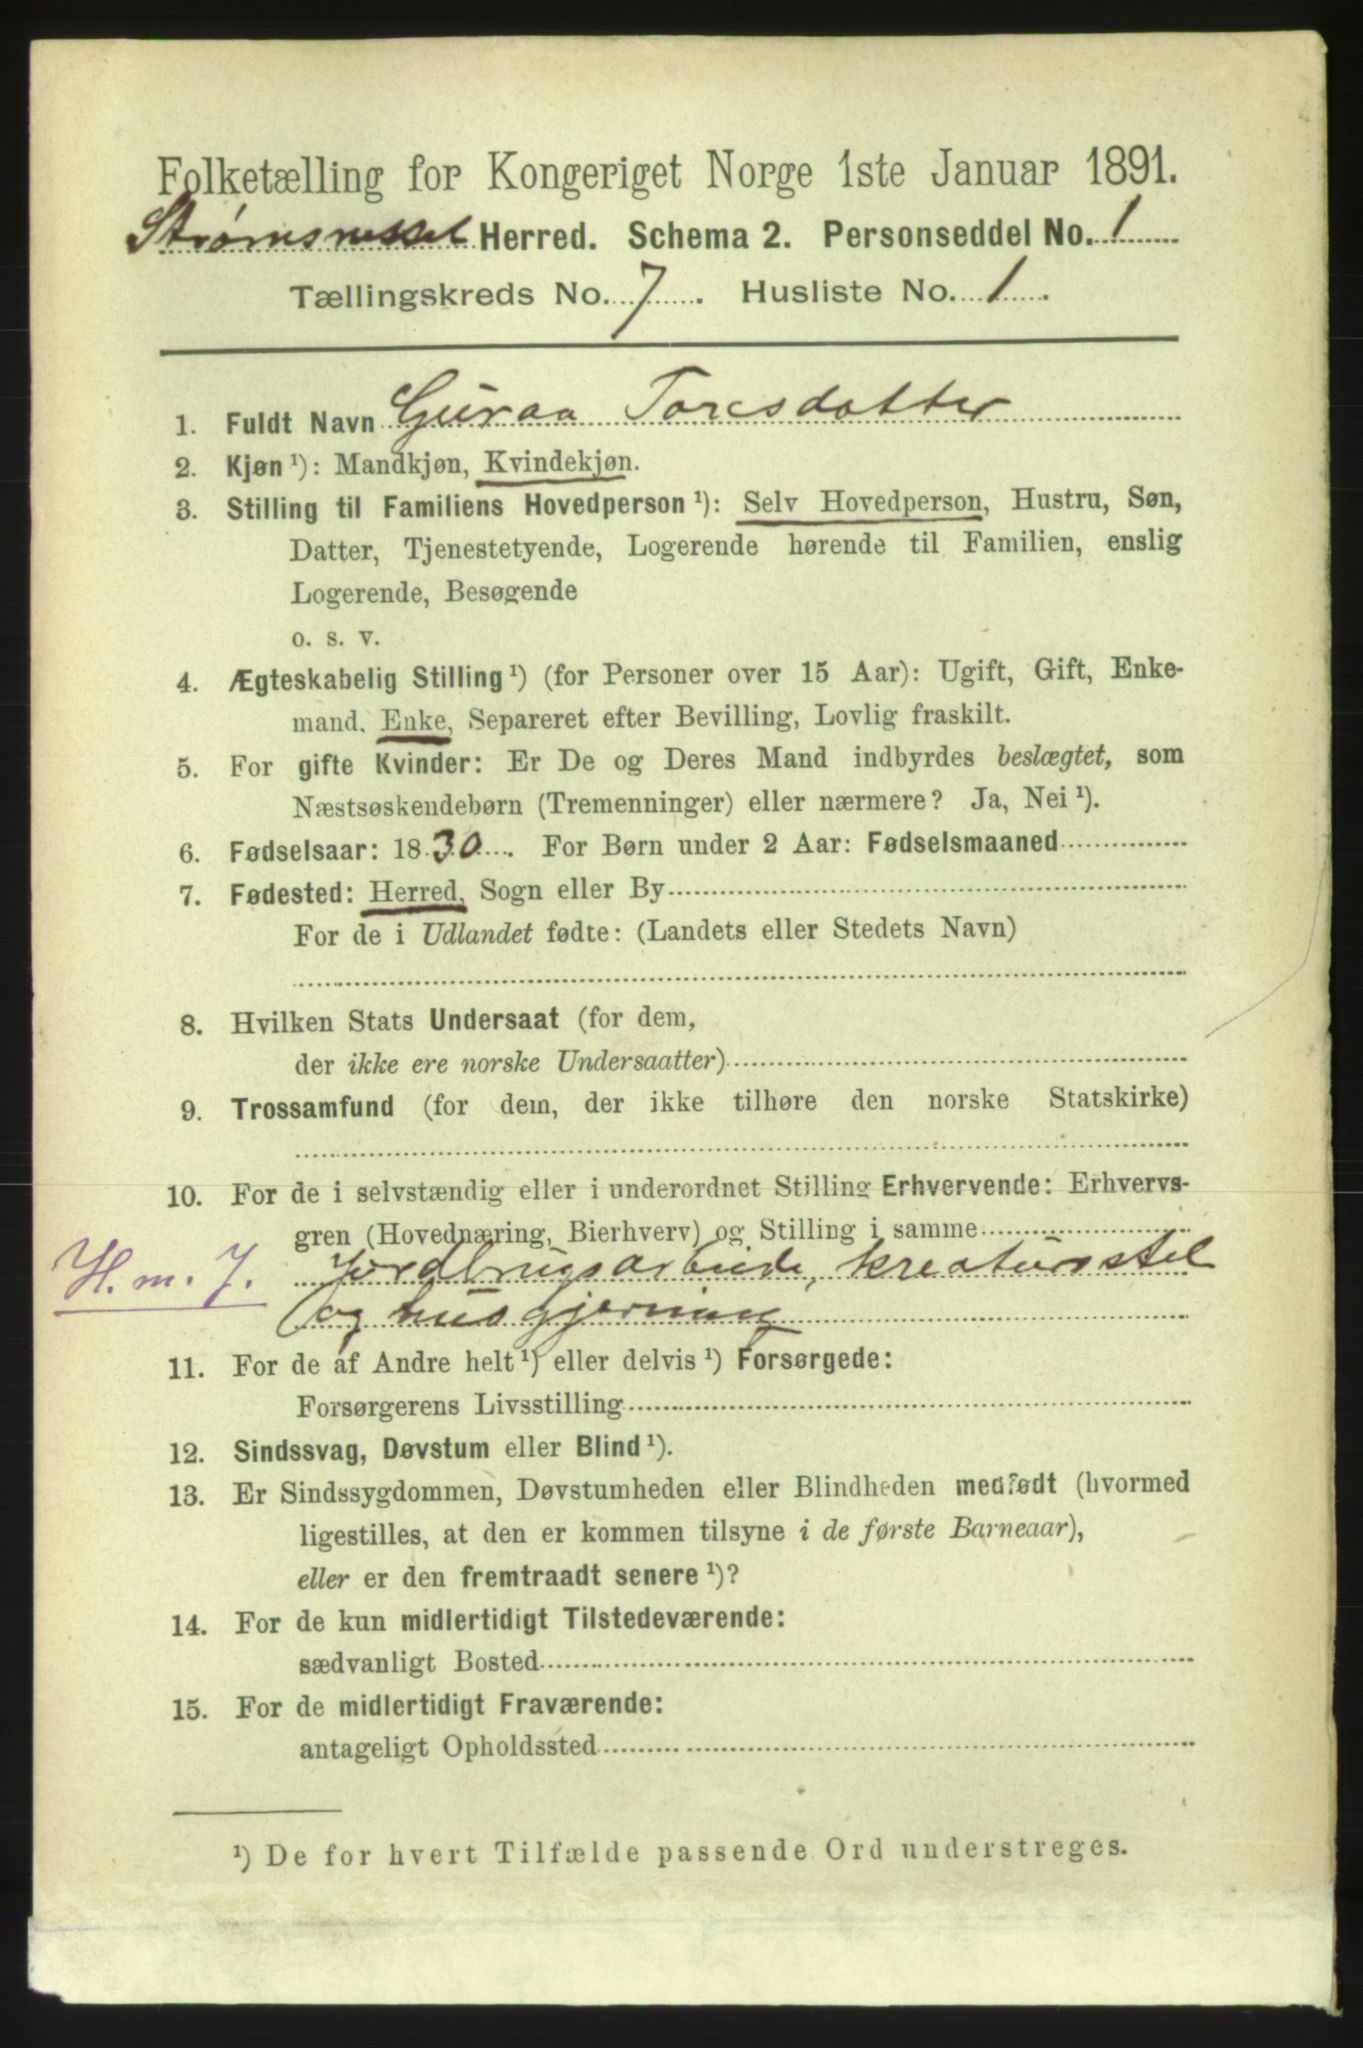 Folketælling for Kongeriget Norge 1ste Januar 1891.
Strømsnesset Herred. Schema 2. Personseddel No. 1
Tællingskreds No. 7. Husliste No. 1.
1. Fuldt Navn Guraa Toresdatter
2. Kjøn ¹): Mandkjøn, Kvindekjøn.
3. Stilling til Familiens Hovedperson ¹): Selv Hovedperson, Hustru, Søn,
Datter, Tjenestetyende, Logerende hørende til Familien, enslig
Logerende, Besøgende
o. s. v.
4. Ægteskabelig Stilling ¹) (for Personer over 15 Aar): Ugift, Gift, Enke-
mand, Enke, Separeret efter Bevilling, Lovlig fraskilt.
5. For gifte Kvinder: Er De og Deres Mand indbyrdes beslægtet, som
Næstsøskendebørn (Tremenninger) eller nærmere? Ja, Nei ¹).
6. Fødselsaar: 1830. For Børn under 2 Aar: Fødselsmaaned
7. Fødested: Herred, Sogn eller By
For de i Udlandet fødte: (Landets eller Stedets Navn)
8. Hvilken Stats Undersaat (for dem,
der ikke ere norske Undersaatter)
9. Trossamfund (for dem, der ikke tilhøre den norske Statskirke)
10. For de i selvstændig eller i underordnet Stilling Erhvervende: Erhvervs-
gren (Hovednæring, Bierhverv) og Stilling i samme
H. m. J. Jordbrugsarbeide, kreatursstel
og husgjerning
11. For de af Andre helt ¹) eller delvis ¹) Forsørgede:
Forsørgerens Livsstilling
12. Sindssvag, Døvstum eller Blind ¹).
13. Er Sindssygdommen, Døvstumheden eller Blindheden medfødt (hvormed
ligestilles, at den er kommen tilsyne i de første Barneaar),
eller er den fremtraadt senere ¹)?
14. For de kun midlertidigt Tilstedeværende:
sædvanligt Bosted
15. For de midlertidigt Fraværende:
antageligt Opholdssted
¹) De for hvert Tilfælde passende Ord understreges.